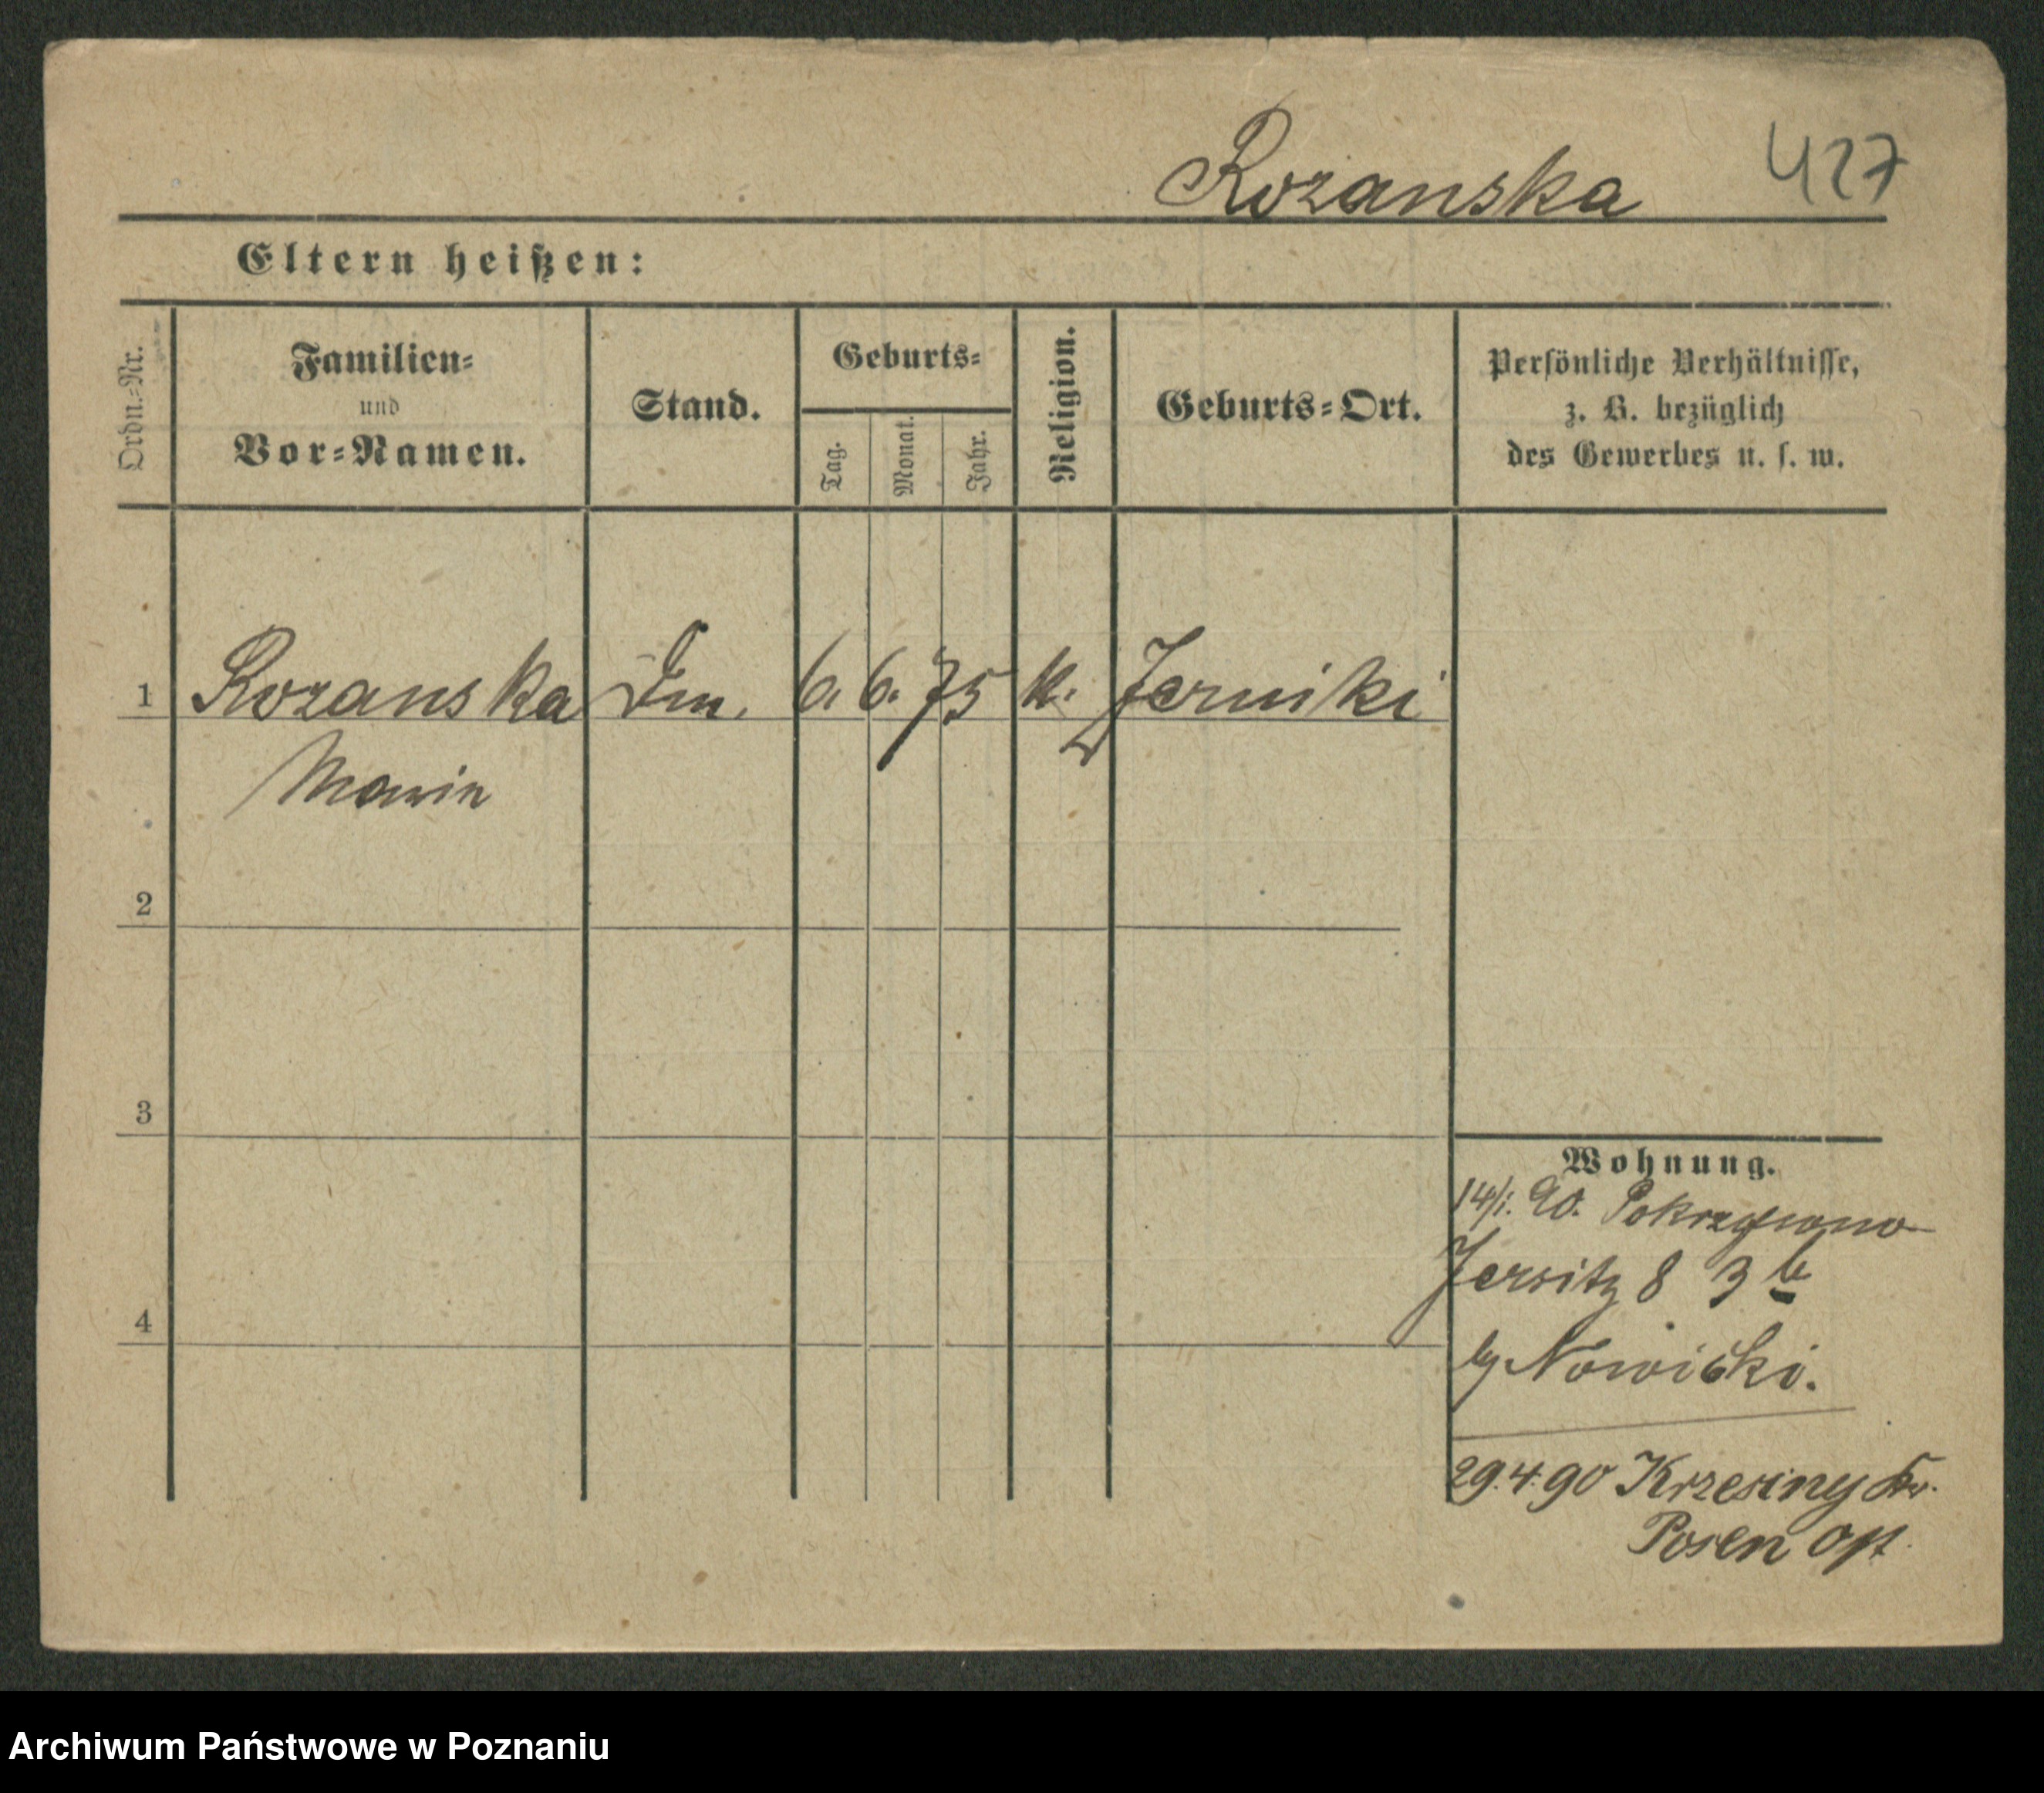 Rozanska 427
Eltern heißen:
Ordn.-Nr.
Familien-
und
Vor-Namen.
Stand.
Geburts-
Tag.
Monat.
Jahr.
Religion.
Geburts-Ort.
Persönliche Verhältnisse,
z. B. bezüglich
des Gewerbes u. s. w.
1 Rozanska Dm. 6. 6. 75 k. Jerniki
Marie
2
3
4
Wohnung.
14/1. 90. Pokrzywno
Jersitz 8 3 b
by Nowicki.
29.4.90 Krzesiny Kr.
Posen Ost
Archiwum Państwowe w Poznaniu